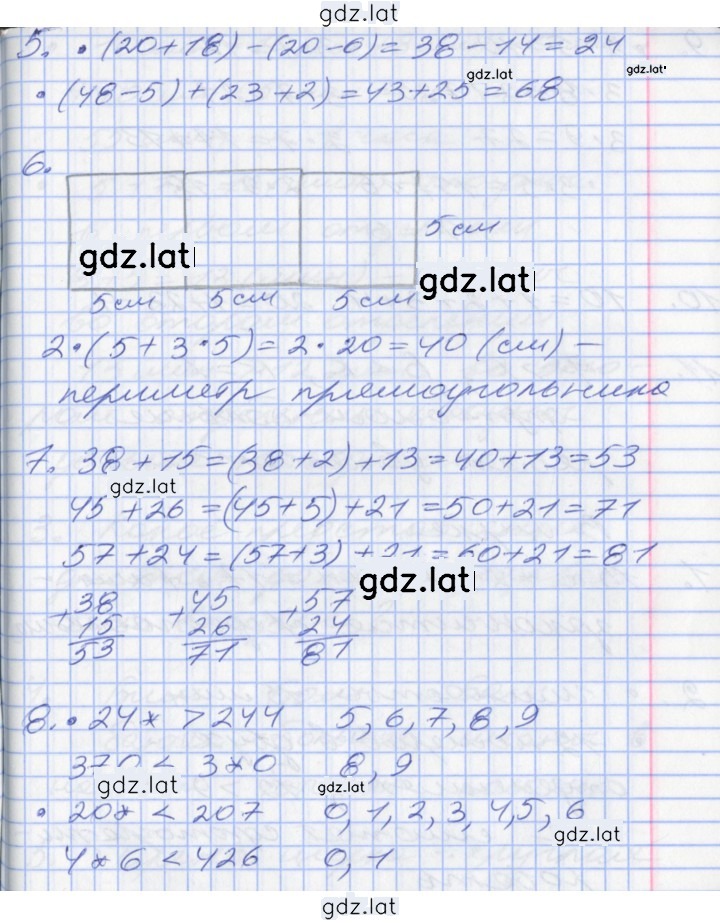 gdz.lat
5. • (20+18)-(20-6)=38-14=24
gdz.lat
gdz.lat
• (48-5)+(23+2)=43+25=68
6.
5см
gdz.lat
gdz.lat
5см 5см 5см
2•(5+3•5)=2•20=40 (см) —
периметр прямоугольника
7. 38+15=(38+2)+13=40+13=53
gdz.lat
45+26=(45+5)+21=50+21=71
57+24=(57+3)+21=60+21=81
gdz.lat
+38 +45 +57
15 26 24
53 71 81
8. • 24* > 244 5, 6, 7, 8, 9
370 < 3*0 8, 9
gdz.lat
gdz.lat
• 20* < 207 0, 1, 2, 3, 4, 5, 6
gdz.lat
4*6 < 426 0, 1
gdz.lat